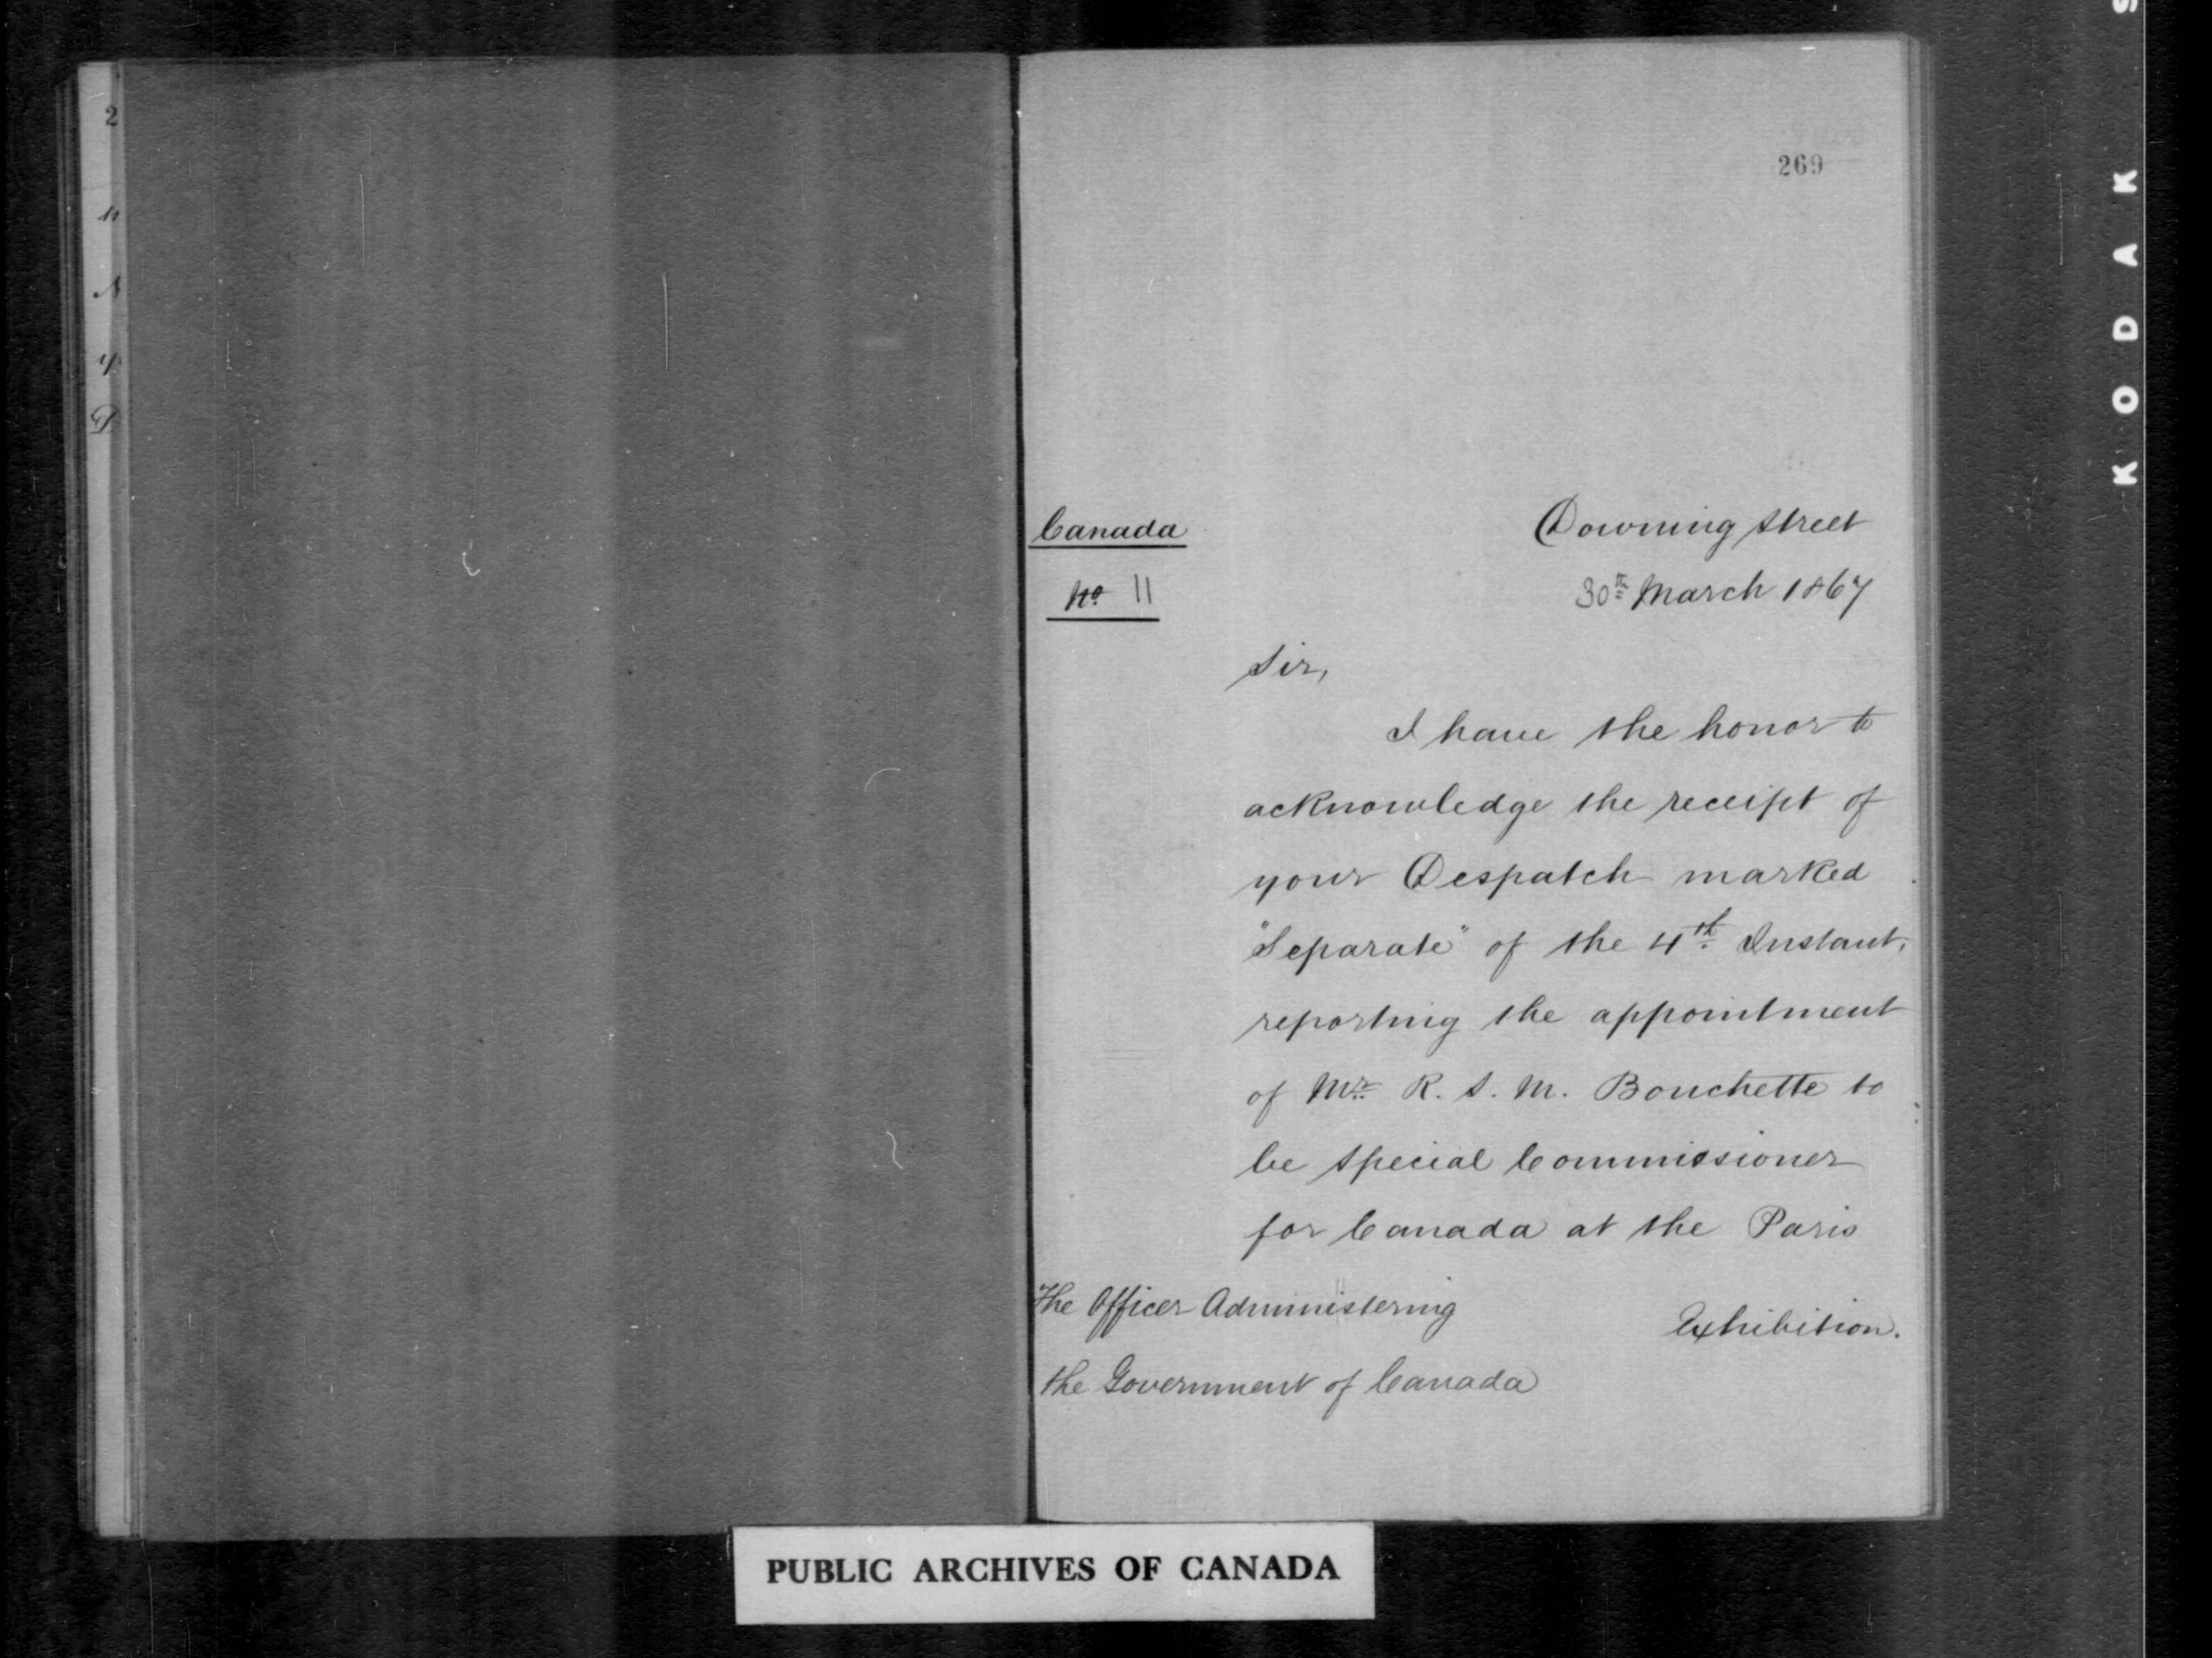 269
Canada
No. 11
Downing Street
30th March 1867
Sir,
I have the honor to
acknowledge the receipt of
your Despatch marked
"Separate" of the 4th Instant,
reporting the appointment
of Mr. R. S. M. Bouchette to
be Special Commissioner
for Canada at the Paris
Exhibition.
The Officer Administering
the Government of Canada
PUBLIC ARCHIVES OF CANADA
KODAK S